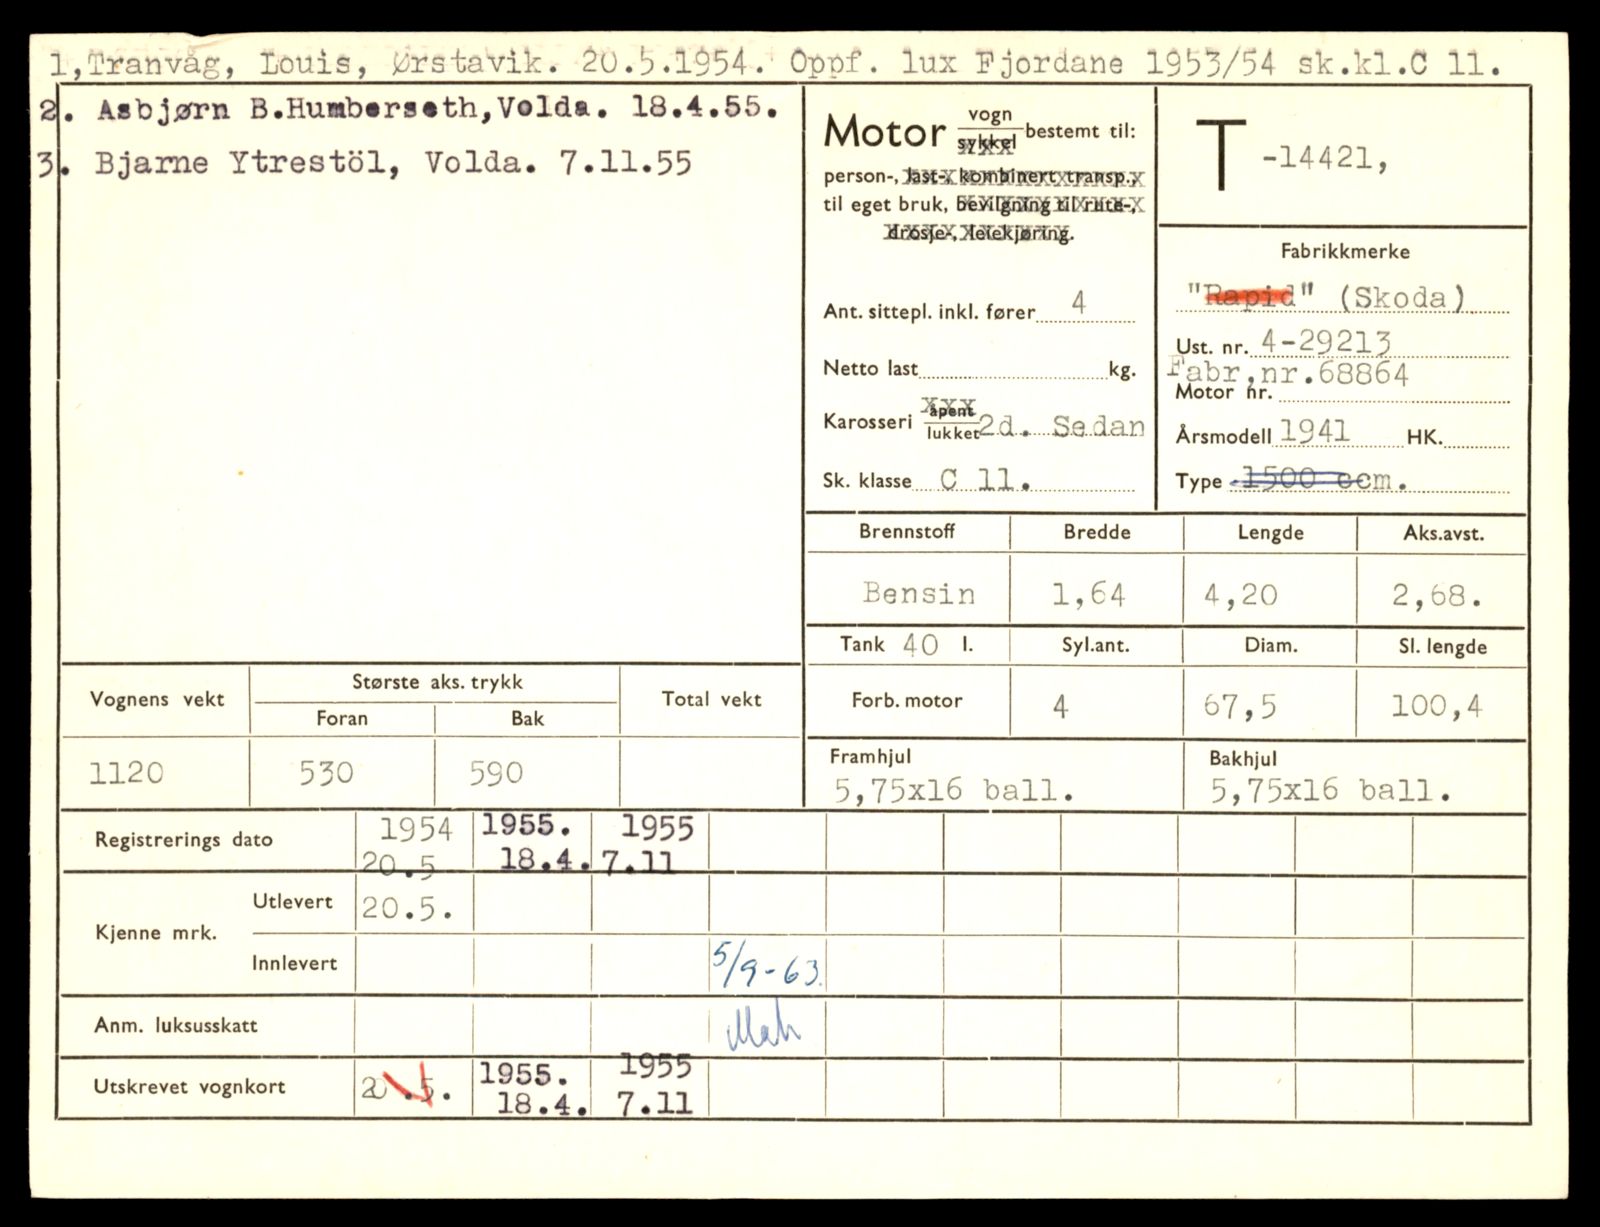 1,Tranvåg, Louis, Ørstavik. 20.5.1954. Oppf. lux Fjordane 1953/54 sk.kl.C 11.
2. Asbjørn B.Humberseth,Volda. 18.4.55.
3. Bjarne Ytrestöl, Volda. 7.11.55
Motor vogn sykkel bestemt til:
person-, last-, kombinert transp.,
til eget bruk, bevilgning til rute-,
drosje-, leiekjøring.
Ant. sittepl. inkl. fører 4
Netto last kg.
Karosseri åpent lukket 2d. Sedan
Sk. klasse C 11.
T -14421,
Fabrikkmerke
"Rapid" (Skoda)
Ust. nr. 4-29213
Fabr,nr.68864
Motor nr.
Årsmodell 1941 HK.
Type 1500 ccm.
Brennstoff Bredde Lengde Aks.avst.
Bensin 1,64 4,20 2,68.
Tank 40 l. Syl.ant. Diam. Sl. lengde
Forb. motor 4 67,5 100,4
Framhjul Bakhjul
5,75x16 ball. 5,75x16 ball.
Vognens vekt Største aks. trykk Total vekt
Foran Bak
1120 530 590
Registrerings dato 1954 1955. 1955
20.5 18.4. 7.11
Kjenne mrk. Utlevert 20.5.
Innlevert 5/9-63.
Anm. luksusskatt
Utskrevet vognkort 20.5. 1955. 1955
18.4. 7.11